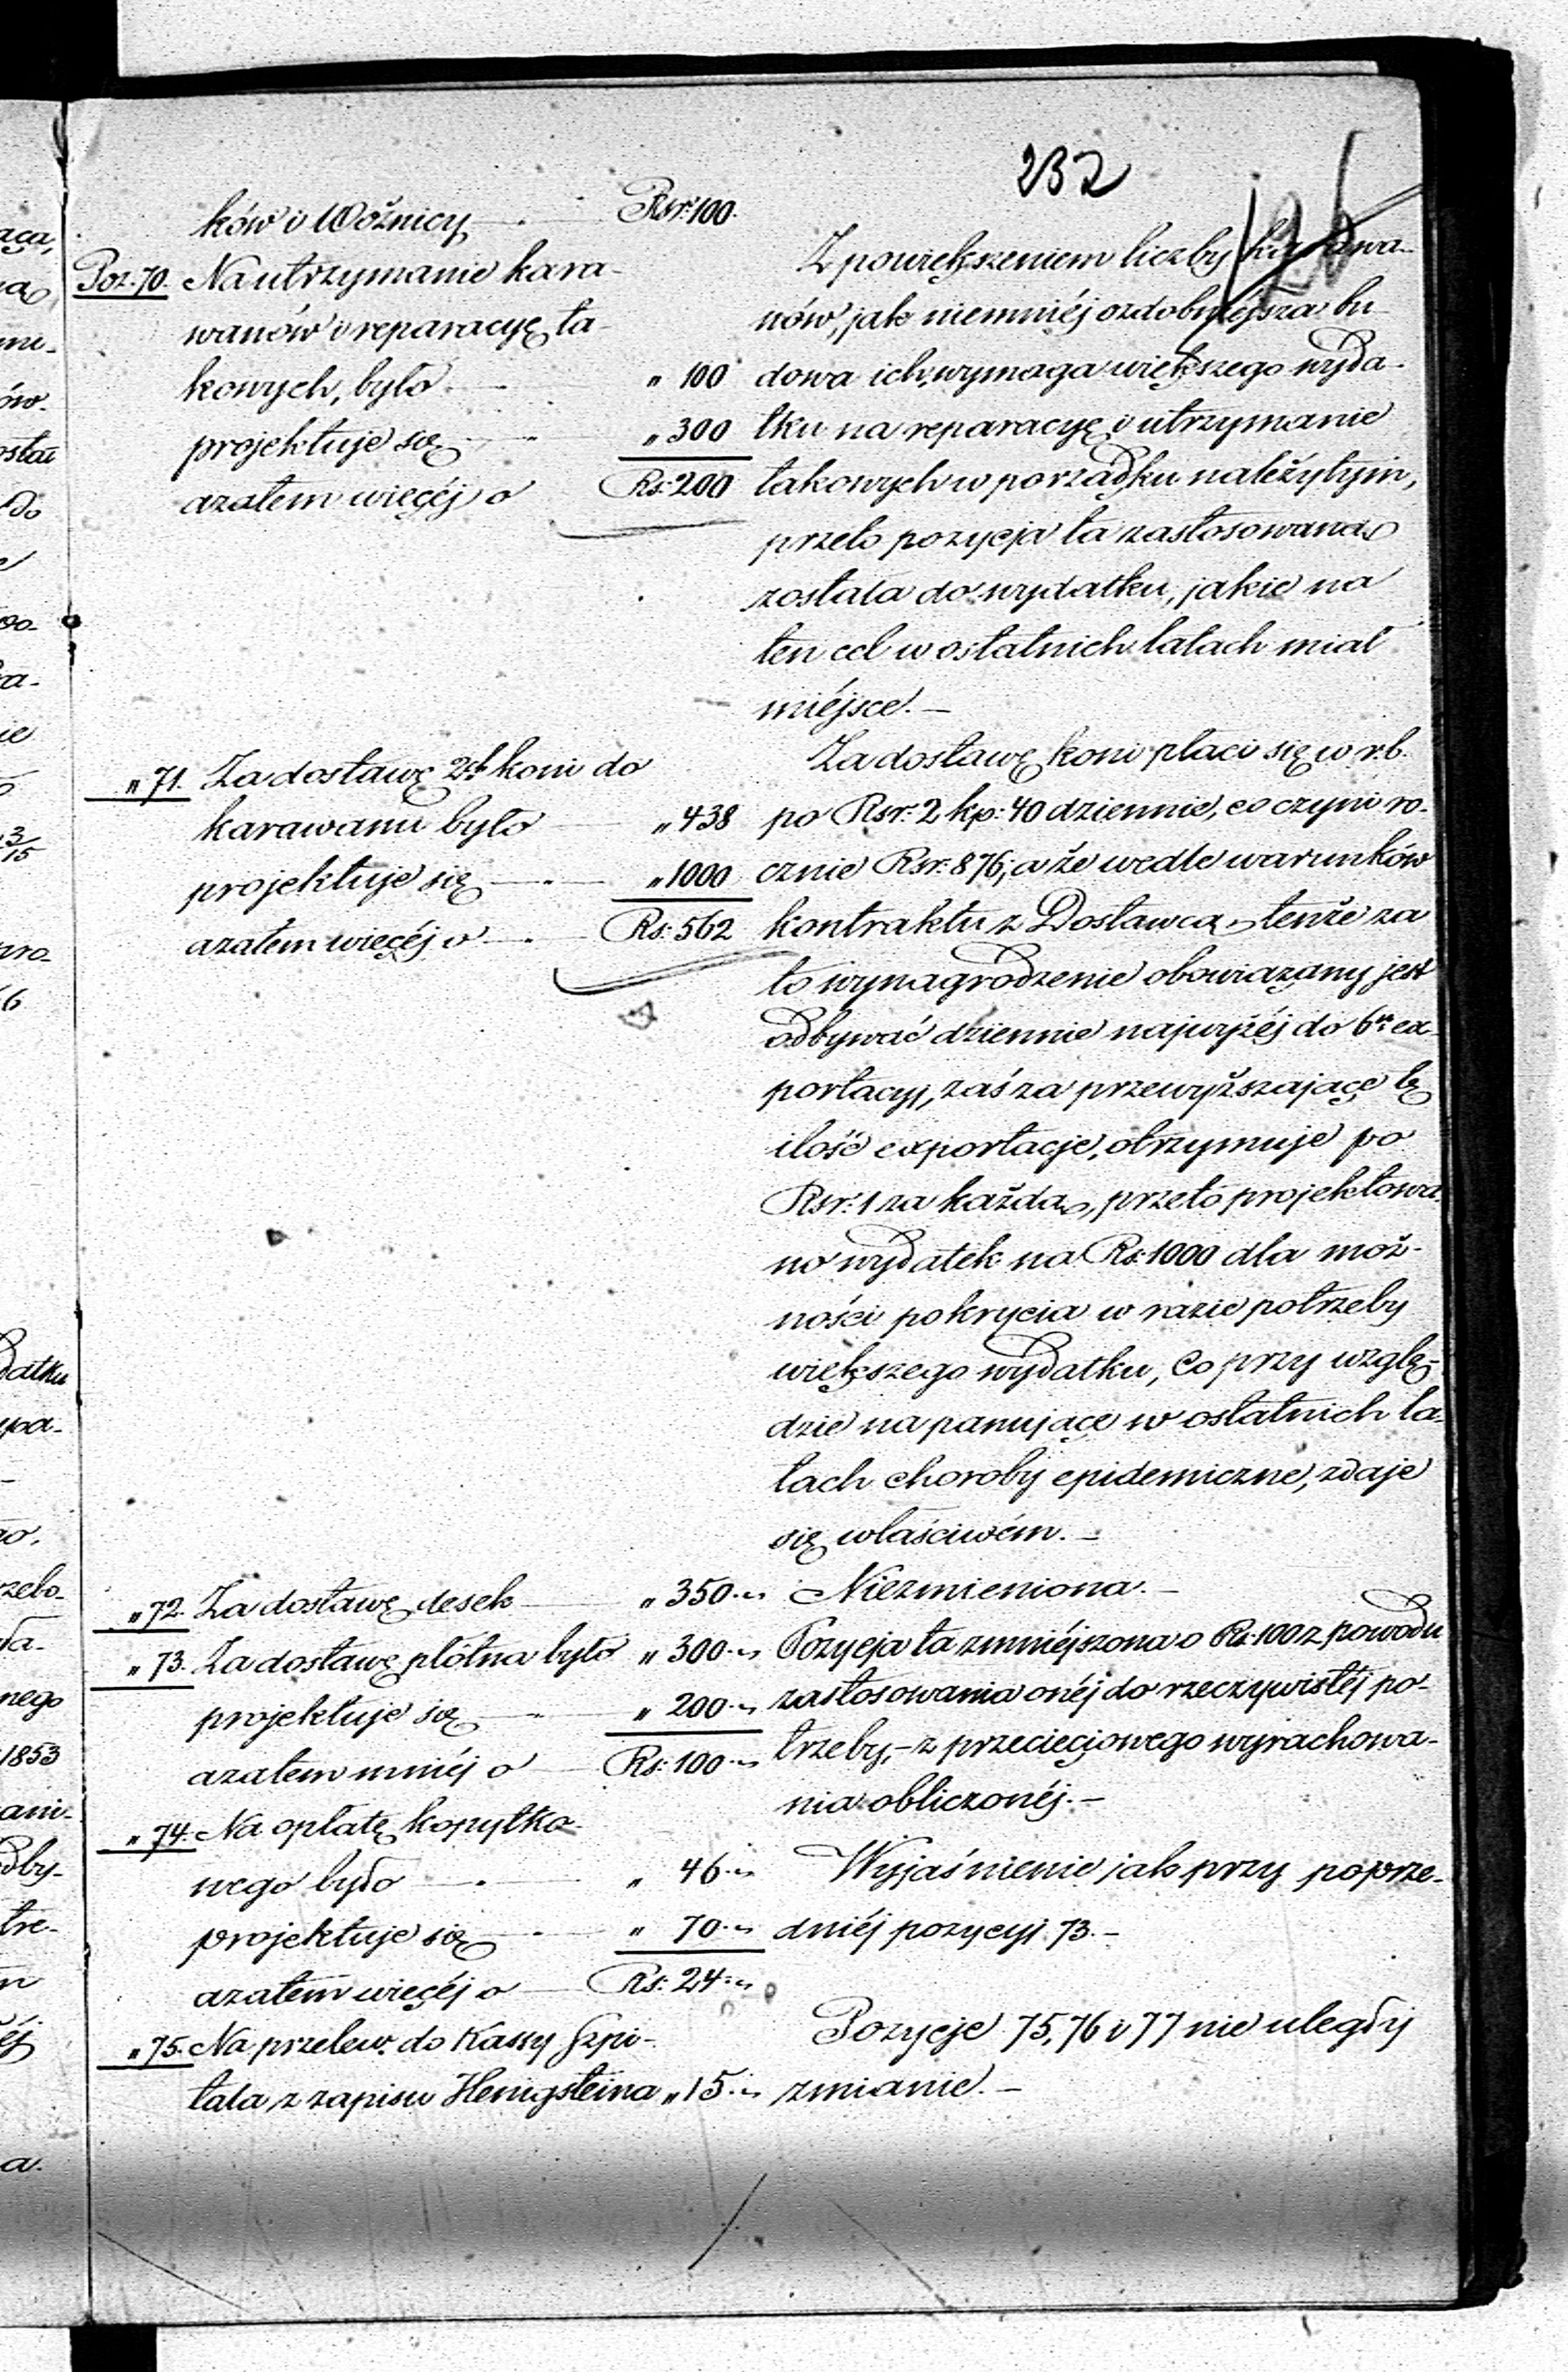 232
126
ków i Woźnicy — Rsr: 100.
Poz. 70. Na utrzymanie kara-
wanów i reparacyę ta-
kowych, było — " 100
projektuje się — " 300
azatem więcéj o Rs: 200
Z powiększeniem liczby karawa-
nów, jak niemniéj ozdobniéjsza bu-
dowa ich, wymaga większego wyda-
tku na reparacyę i utrzymanie
takowych w porządku należytym,
przeto pozycja ta zastosowaną
została do wydatku, jakie na
ten cel w ostatnich latach miał
miéjsce. —
" 71. Za dostawę 2ch koni do
karawanu było — " 438
projektuje się — " 1000
azatem więcéj o — Rs: 562
Za dostawę koni płaci się w r.b.
po Rsr: 2 kp: 40 dziennie, co czyni ro-
cznie Rsr: 876, a że wedle warunków
kontraktu z Dostawcą, tenże za
to wynagrodzenie obowiązany jest
odbywać dziennie najwyżéj do 6u ex-
portacyj, zaś za przewyższające tę
ilość exportacje, otrzymuje po
Rsr: 1 za każdą, przeto projektowa-
no wydatek na Rs: 1000 dla moż-
ności pokrycia w razie potrzeby
większego wydatku, co przy wzglę-
dzie na panujące w ostatnich la-
tach choroby epidemiczne, zdaje
się właściwém. —
" 72. Za dostawę desek — " 350. "
Niezmieniona. —
" 73. Za dostawę płótna było " 300. "
projektuje się — " 200. "
azatem mniéj o — Rs: 100. "
Pozycja ta zmniéjszona o Rs: 100 z powodu
zastosowania onéj do rzeczywistéj po-
trzeby, – z przecięciowego wyrachowa-
nia obliczonéj. —
" 74. Na opłatę kopytko-
wego było — " 46. "
projektuje się — " 70. "
azatem więcéj o — Rs: 24. "
Wyjaśnienie jak przy poprze-
dniéj pozycyj 73. —
" 75. Na przelew. do Kassy Szpi-
tala z zapisu Henigsteina " 15. "
Pozycje 75, 76 i 77 nie uległy
zmianie. —